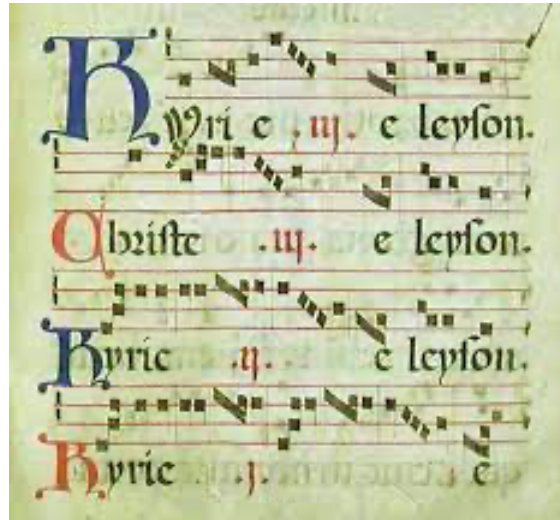 Kyrie .iij. eleyson.
Christe .iij. eleyson.
Kyrie .ij. eleyson.
Kyrie .j. e